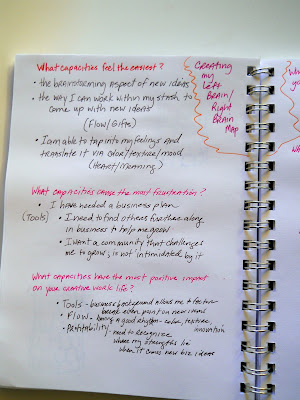 What capacities feel the easiest?
• the brainstorming aspect of new ideas
• the way I can work within my stash to
come up with new ideas
(Flow/Gifts)
• I am able to tap into my feelings and
translate it via color/texture/mood
(Heart/Meaning)
CREATING
my
Left
BRAIN/
Right
BRAIN
MAP
What capacities cause the most frustration?
• I have needed a business plan
(Tools) • I need to find others further along
in business to help me grow
• I want a community that challenges
me to grow, is not intimidated by it
What capacities have the most positive impact
on your creative work life?
• Tools - business background allows me to
break even point on new ideas
• Flow - having a good rhythm - color, texture,
innovation
• Profitability - need to recognize
where my strengths lie
when it comes new biz ideas
Wh
yo
Wh